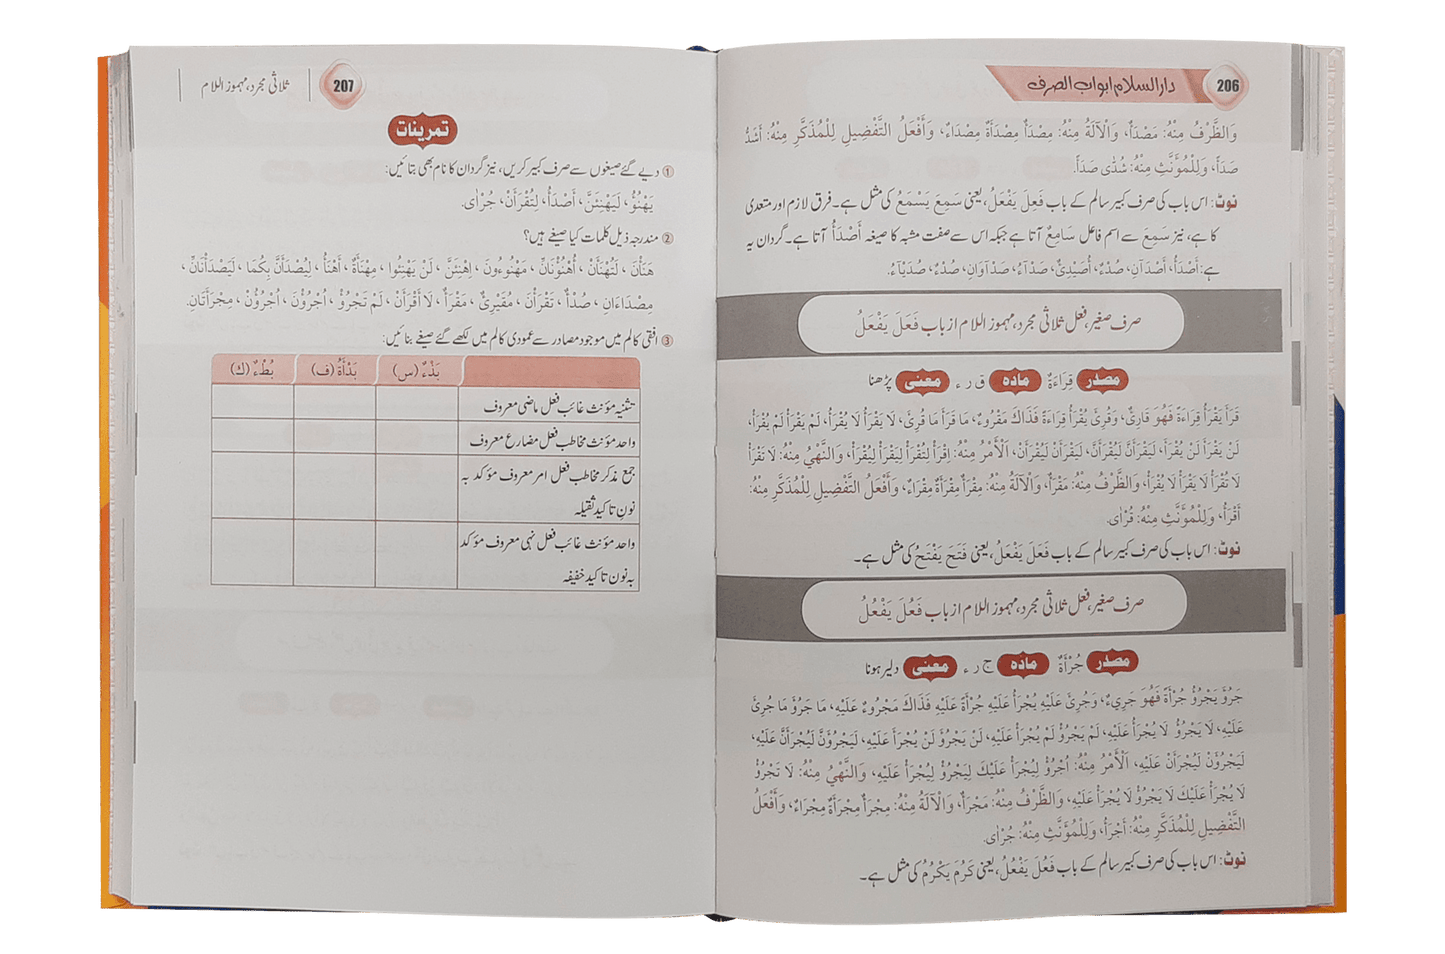 206
دار السلام ابواب الصرف
وَالظَّرْفُ مِنْهُ: مَصْدَأٌ، وَالْآلَةُ مِنْهُ: مِصْدَأٌ مِصْدَأَةٌ مِصْدَاءٌ، وَأَفْعَلُ التَّفْضِيلِ لِلْمُذَكَّرِ مِنْهُ: أَشَدُّ
صَدَأً، وَلِلْمُؤَنَّثِ مِنْهُ: شُدّٰى صَدَأً.
نوٹ: اس باب کی صرف کبیر سالم کے باب فَعِلَ يَفْعَلُ، یعنی سَمِعَ يَسْمَعُ کی مثل ہے۔ فرق لازم اور متعدی
کا ہے، نیز سَمِعَ سے اسم فاعل سَامِعٌ آتا ہے جبکہ اس سے صفت مشبہ کا صیغہ أَصْدَأُ آتا ہے۔ گردان یہ
ہے: أَصْدَأُ، أَصْدَآنِ، صُدْءٌ، أُصَيْدِئٌ، صَدْآءُ، صَدْآوَانِ، صُدْءٌ، صُدَيْآءُ.
صرف صغیر، فعل ثلاثی مجرد، مہموز اللام از باب فَعَلَ يَفْعَلُ
مصدر قِرَاءَةٌ مادہ ق ر ء معنی پڑھنا
قَرَأَ يَقْرَأُ قِرَاءَةً فَهُوَ قَارِئٌ، وَقُرِئَ يُقْرَأُ قِرَاءَةً فَذَاكَ مَقْرُوءٌ، مَا قَرَأَ مَا قُرِئَ، لَا يَقْرَأُ لَا يُقْرَأُ، لَمْ يَقْرَأْ لَمْ يُقْرَأْ،
لَنْ يَقْرَأَ لَنْ يُقْرَأَ، لَيَقْرَأَنَّ لَيُقْرَأَنَّ، لَيَقْرَأَنْ لَيُقْرَأَنْ، اَلْأَمْرُ مِنْهُ: اِقْرَأْ لِتُقْرَأْ لِيَقْرَأْ لِيُقْرَأْ، وَالنَّهْيُ مِنْهُ: لَا تَقْرَأْ
لَا تُقْرَأْ لَا يَقْرَأْ لَا يُقْرَأْ، وَالظَّرْفُ مِنْهُ: مَقْرَأٌ، وَالْآلَةُ مِنْهُ: مِقْرَأٌ مِقْرَأَةٌ مِقْرَاءٌ، وَأَفْعَلُ التَّفْضِيلِ لِلْمُذَكَّرِ مِنْهُ:
أَقْرَأُ، وَلِلْمُؤَنَّثِ مِنْهُ: قُرْاٰى.
نوٹ: اس باب کی صرف کبیر سالم کے باب فَعَلَ يَفْعَلُ، یعنی فَتَحَ يَفْتَحُ کی مثل ہے۔
صرف صغیر، فعل ثلاثی مجرد، مہموز اللام از باب فَعُلَ يَفْعُلُ
مصدر جُرْأَةٌ مادہ ج ر ء معنی دلیر ہونا
جَرُؤَ يَجْرُؤُ جُرْأَةً فَهُوَ جَرِيءٌ، وَجُرِئَ عَلَيْهِ يُجْرَأُ عَلَيْهِ جُرْأَةً عَلَيْهِ فَذَاكَ مَجْرُوءٌ عَلَيْهِ، مَا جَرُؤَ مَا جُرِئَ
عَلَيْهِ، لَا يَجْرُؤُ لَا يُجْرَأُ عَلَيْهِ، لَمْ يَجْرُؤْ لَمْ يُجْرَأْ عَلَيْهِ، لَنْ يَجْرُؤَ لَنْ يُجْرَأَ عَلَيْهِ، لَيَجْرُؤَنَّ لَيُجْرَأَنَّ عَلَيْهِ،
لَيَجْرُؤَنْ لَيُجْرَأَنْ عَلَيْهِ، اَلْأَمْرُ مِنْهُ: اُجْرُؤْ لِيُجْرَأْ عَلَيْكَ لِيَجْرُؤْ لِيُجْرَأْ عَلَيْهِ، وَالنَّهْيُ مِنْهُ: لَا تَجْرُؤْ
لَا يُجْرَأْ عَلَيْكَ لَا يَجْرُؤْ لَا يُجْرَأْ عَلَيْهِ، وَالظَّرْفُ مِنْهُ: مَجْرَأٌ، وَالْآلَةُ مِنْهُ: مِجْرَأٌ مِجْرَأَةٌ مِجْرَاءٌ، وَأَفْعَلُ
التَّفْضِيلِ لِلْمُذَكَّرِ مِنْهُ: أَجْرَأُ، وَلِلْمُؤَنَّثِ مِنْهُ: جُرْاٰى.
نوٹ: اس باب کی صرف کبیر سالم کے باب فَعُلَ يَفْعُلُ، یعنی كَرُمَ يَكْرُمُ کی مثل ہے۔
207
ثلاثی مجرد، مہموز اللام
تمرینات
① دیے گئے صیغوں سے صرف کبیر کریں، نیز گردان کا نام بھی بتائیں:
يَهْنُؤُ، لَيَهْنِئَنَّ، أَصْدَأُ، لِتُقْرَأَنْ، جُرْاٰى.
② مندرجہ ذیل کلمات کیا صیغے ہیں؟
هَنَأْنَ ، لَتُهْنَأَنْ ، أُهْنُؤْنَانِّ ، مَهْنُوءُونَ ، اِهْنِئَنَّ ، لَنْ يَهْنِئُوا ، مِهْنَأَةٌ ، أَهْنَأُ ، لِيُصْدَأَنَّ بِكُمَا ، لَيَصْدَأْنَانِّ ،
مِصْدَاءَانِ ، صُدْأٌ ، تَقْرَأْنَ ، مُقَيْرِئٌ ، مَقْرَأٌ ، لَا أَقْرَأَنْ ، لَمْ تَجْرُؤْ ، اُجْرُؤْنَ ، اُجْرُؤُنْ ، مِجْرَأَتَانِ.
③ افقی کالم میں موجود مصادر سے عمودی کالم میں لکھے گئے صیغے بنائیں:
بَذْءٌ (س) بَدْأَةٌ (ف) بُطْءٌ (ك)
تثنیہ مؤنث غائب فعل ماضی معروف
واحد مؤنث مخاطب فعل مضارع معروف
جمع مذکر مخاطب فعل امر معروف مؤکد بہ
نون تاکید ثقیلہ
واحد مؤنث غائب فعل نہی معروف مؤکد
بہ نون تاکید خفیفہ